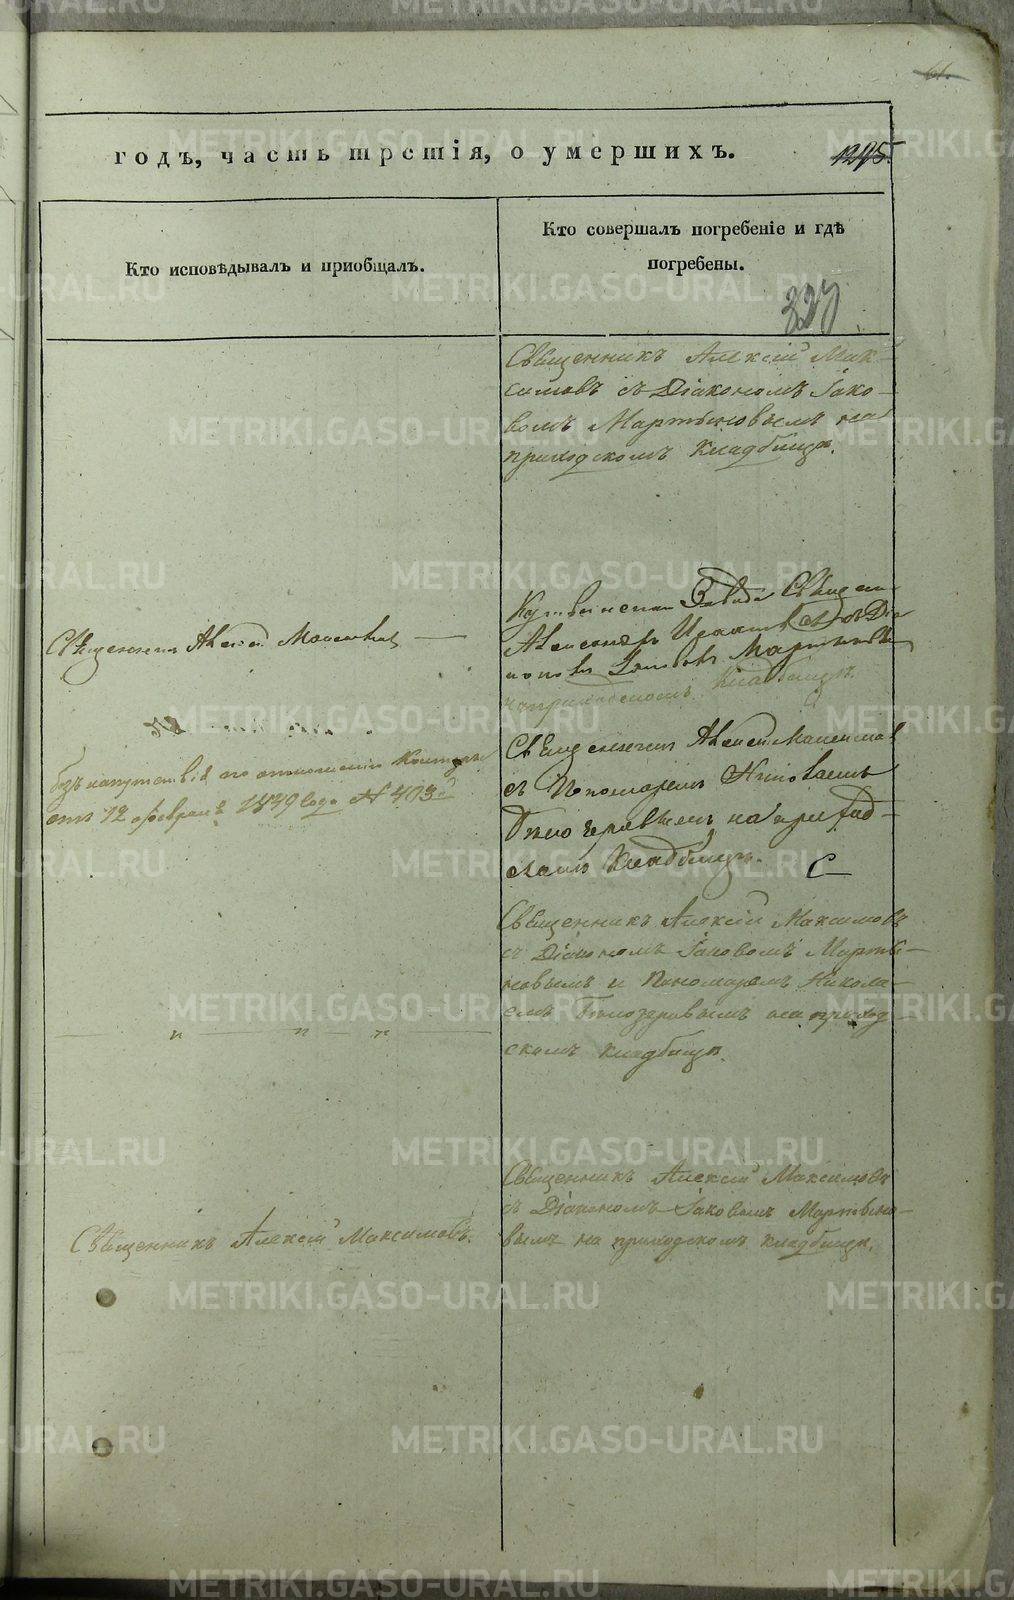 61.
годъ, часть третія, о умершихъ.
1245.
Кто исповѣдывалъ и приобщалъ.
Кто совершалъ погребеніе и гдѣ
погребены.
227
Священникъ Алексій Мак-
симовъ съ Діакономъ Іако-
вомъ Мартыновымъ на
приходскомъ кладбищѣ.
Священникъ Алексій Максимовъ
завода Священ
Александръ
Іаковъ Мартыновъ
на приходскомъ кладбищѣ.
безъ напутствія по отношенію Конторы
отъ 12 февраля 1849 года № 403й
Священникъ Алексій Максимовъ
съ Пономаремъ Николаемъ
Бѣлозеровымъ на приход-
скомъ кладбищѣ.
Священникъ Алексій Максимовъ
съ Діакономъ Іаковомъ Марты-
новымъ и Пономаремъ Никола-
емъ Бѣлозеровымъ на приход-
скомъ кладбищѣ.
Священникъ Алексій Максимовъ.
Священникъ Алексій Максимовъ
съ Діакономъ Іаковомъ Мартыно-
вымъ на приходскомъ кладбищѣ.
METRIKI.GASO-URAL.RU